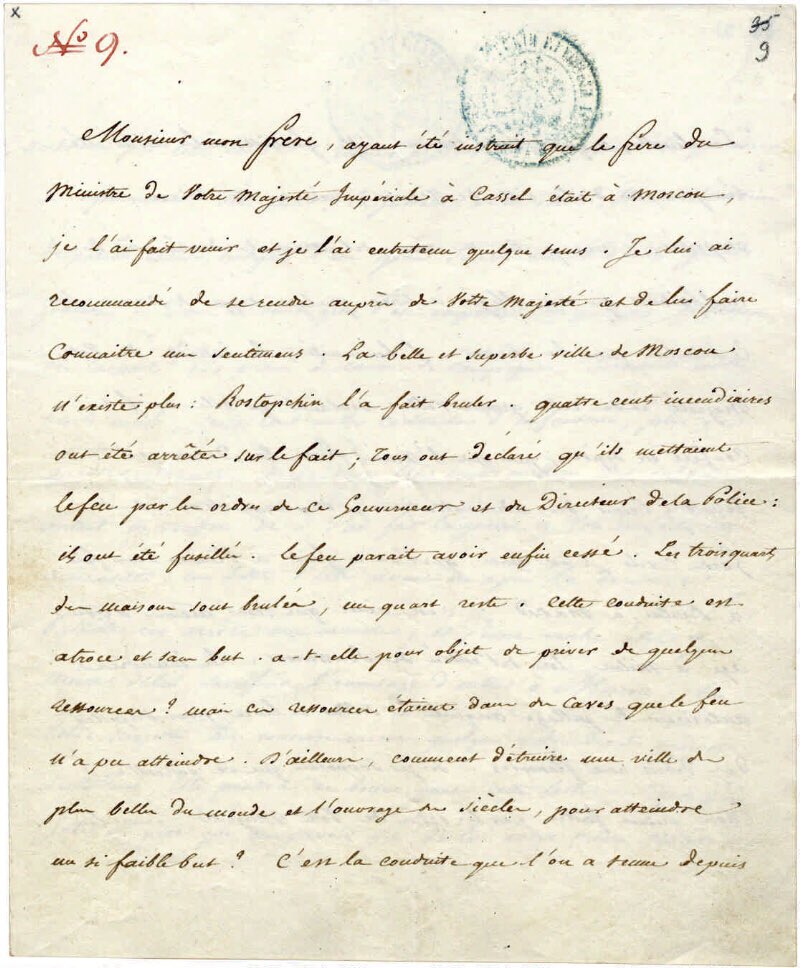 x
№ 9.
35
9
Monsieur mon frère, ayant été instruit que le frère du
Ministre de Votre Majesté Impériale à Cassel était à Moscou,
je l'ai fait venir et je l'ai entretenu quelque tems. Je lui ai
recommandé de se rendre auprès de Votre Majesté et de lui faire
connaitre mes sentimens. La belle et superbe ville de Moscou
n'existe plus: Rostopchin l'a fait bruler. quatre cents incendiaires
ont été arrêtés sur le fait; tous ont déclaré qu'ils mettaient
le feu par les ordres de ce Gouverneur et du Directeur de la Police:
ils ont été fusillés. le feu parait avoir enfin cessé. Les trois quarts
des maisons sont brulées, un quart reste. Cette conduite est
atroce et sans but. a-t-elle pour objet de priver de quelques
ressources? mais ces ressources étaient dans des caves que le feu
n'a pu atteindre. D'ailleurs, comment détruire une ville des
plus belles du monde et l'ouvrage des siècles, pour atteindre
un si faible but? C'est la conduite que l'on a tenue depuis